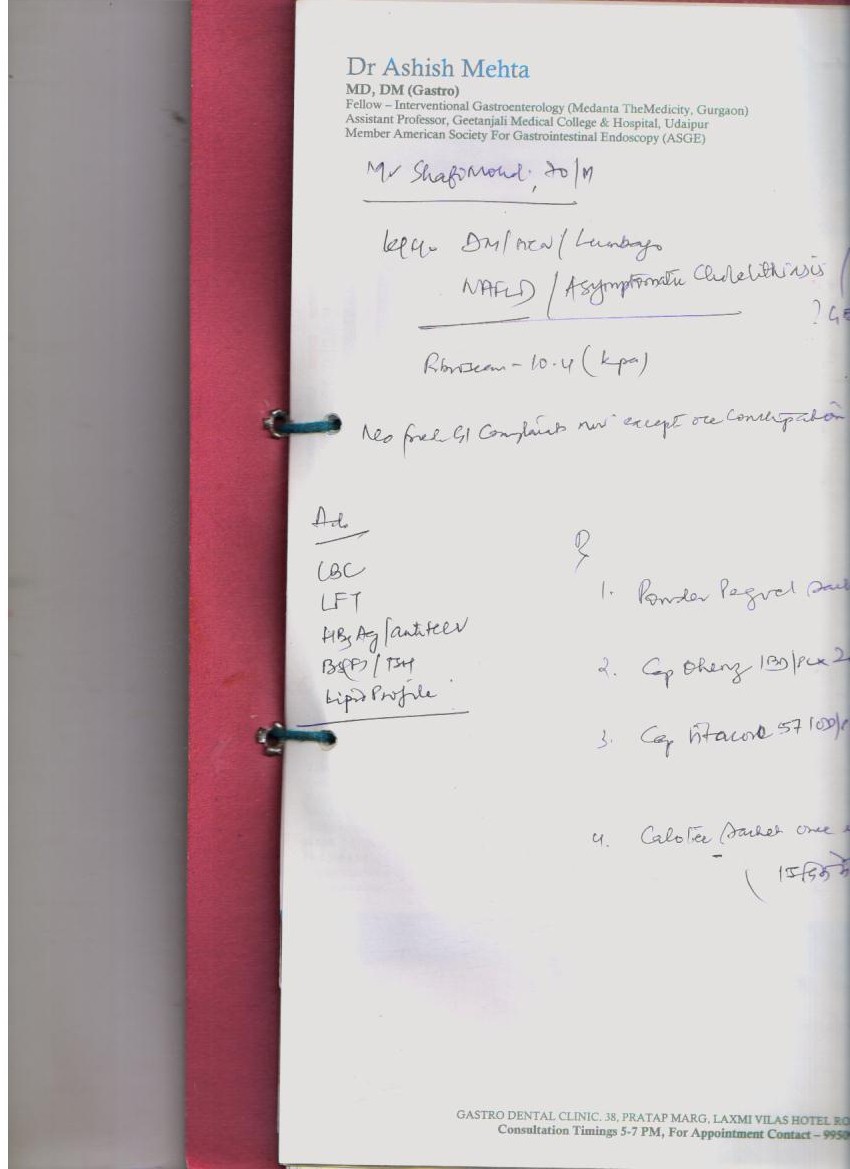 Dr Ashish Mehta
MD, DM (Gastro)
Fellow – Interventional Gastroenterology (Medanta TheMedicity, Gurgaon)
Assistant Professor, Geetanjali Medical College & Hospital, Udaipur
Member American Society For Gastrointestinal Endoscopy (ASGE)
Mr Shafi Mohd. 70/M
DM/HTN/Lumbago
NAFLD / Asymptomatic Cholelithiasis /
Fibroscan - 10.4 (kpa)
GI Complaints now except occ Constipation
Ad.
CBC
LFT
HBsAg/antiHCV
BS(F)/TSH
Lipid Profile
1. Powder Pegvel
2. Cap
3. Cap
4. sachet once
GASTRO DENTAL CLINIC. 38, PRATAP MARG, LAXMI VILAS HOTEL RO
Consultation Timings 5-7 PM, For Appointment Contact – 9950